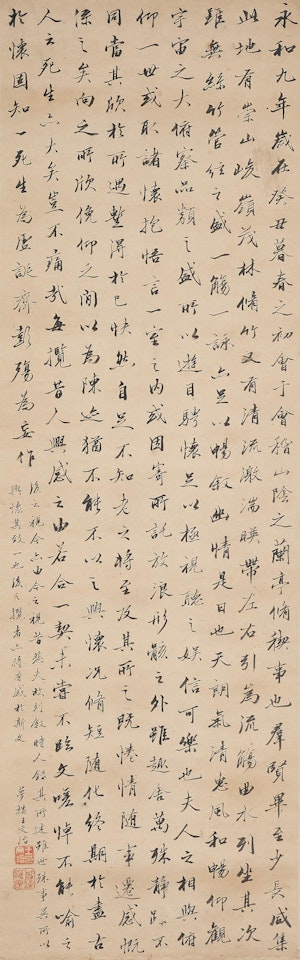 永和九年歲在癸丑暮春之初會于會稽山陰之蘭亭脩禊事也羣賢畢至少長咸集
此地有崇山峻嶺茂林脩竹又有清流激湍暎帶左右引為流觴曲水列坐其次
雖無絲竹管絃之盛一觴一詠亦足以暢敘幽情是日也天朗氣清惠風和暢仰觀
宇宙之大俯察品類之盛所以遊目騁懷足以極視聽之娛信可樂也夫人之相與俯
仰一世或取諸懷抱悟言一室之內或因寄所託放浪形骸之外雖趣舍萬殊靜躁不
同當其欣於所遇暫得於己快然自足不知老之將至及其所之既惓情隨事遷感慨
係之矣向之所欣俛仰之間以為陳迹猶不能不以之興懷況脩短隨化終期於盡古
人云死生亦大矣豈不痛哉每攬昔人興感之由若合一契未嘗不臨文嗟悼不能喻之
於懷固知一死生為虛誕齊彭殤為妄作
後之視今亦由今之視昔悲夫故列敘時人錄其所述雖世殊事異所以
興懷其致一也後之攬者亦將有感於斯文
夢樓王文治